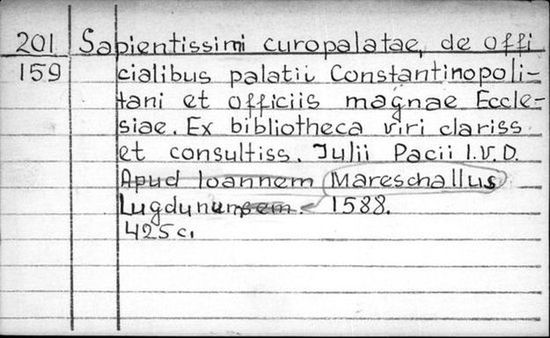 201 Sapientissimi curopalatae, de offi
159 cialibus palatii Constantinopoli-
tani et officiis magnae Eccle-
siae. Ex bibliotheca viri clariss.
et consultiss. Julii Pacii I.V.D.
Apud Ioannem Mareschallus
Lugdunensem. 1588.
425 c.